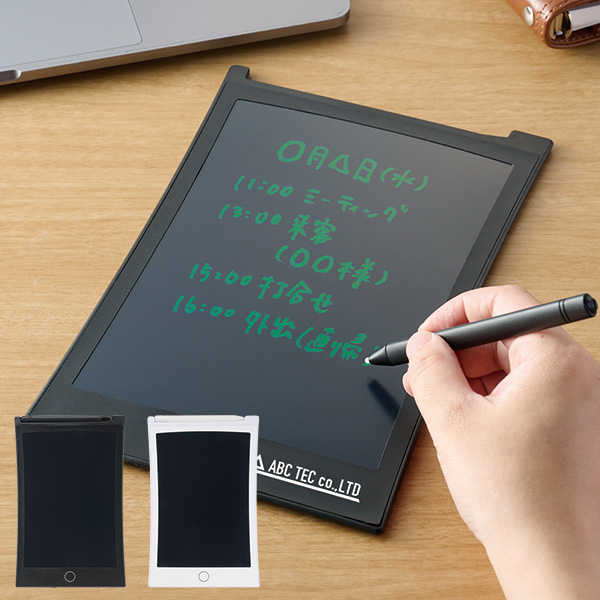 〇月△日(水)
11:00 ミーティング
13:00 来客
(〇〇様)
15:00 打合せ
16:00 外出(直帰)
ABC TEC co.,LTD